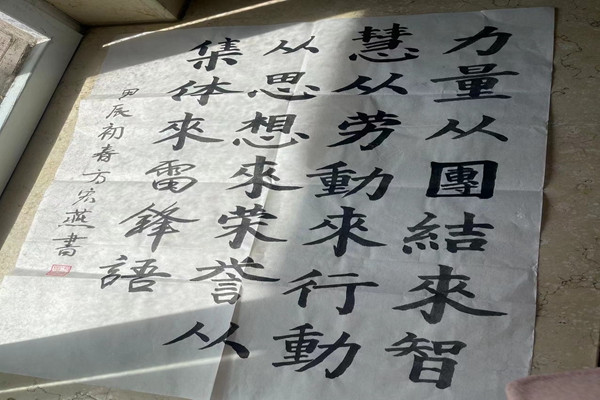 力量从團結來智
慧从劳動來行動
从思想來荣誉从
集体來雷鋒語
甲辰初春方宏燕書